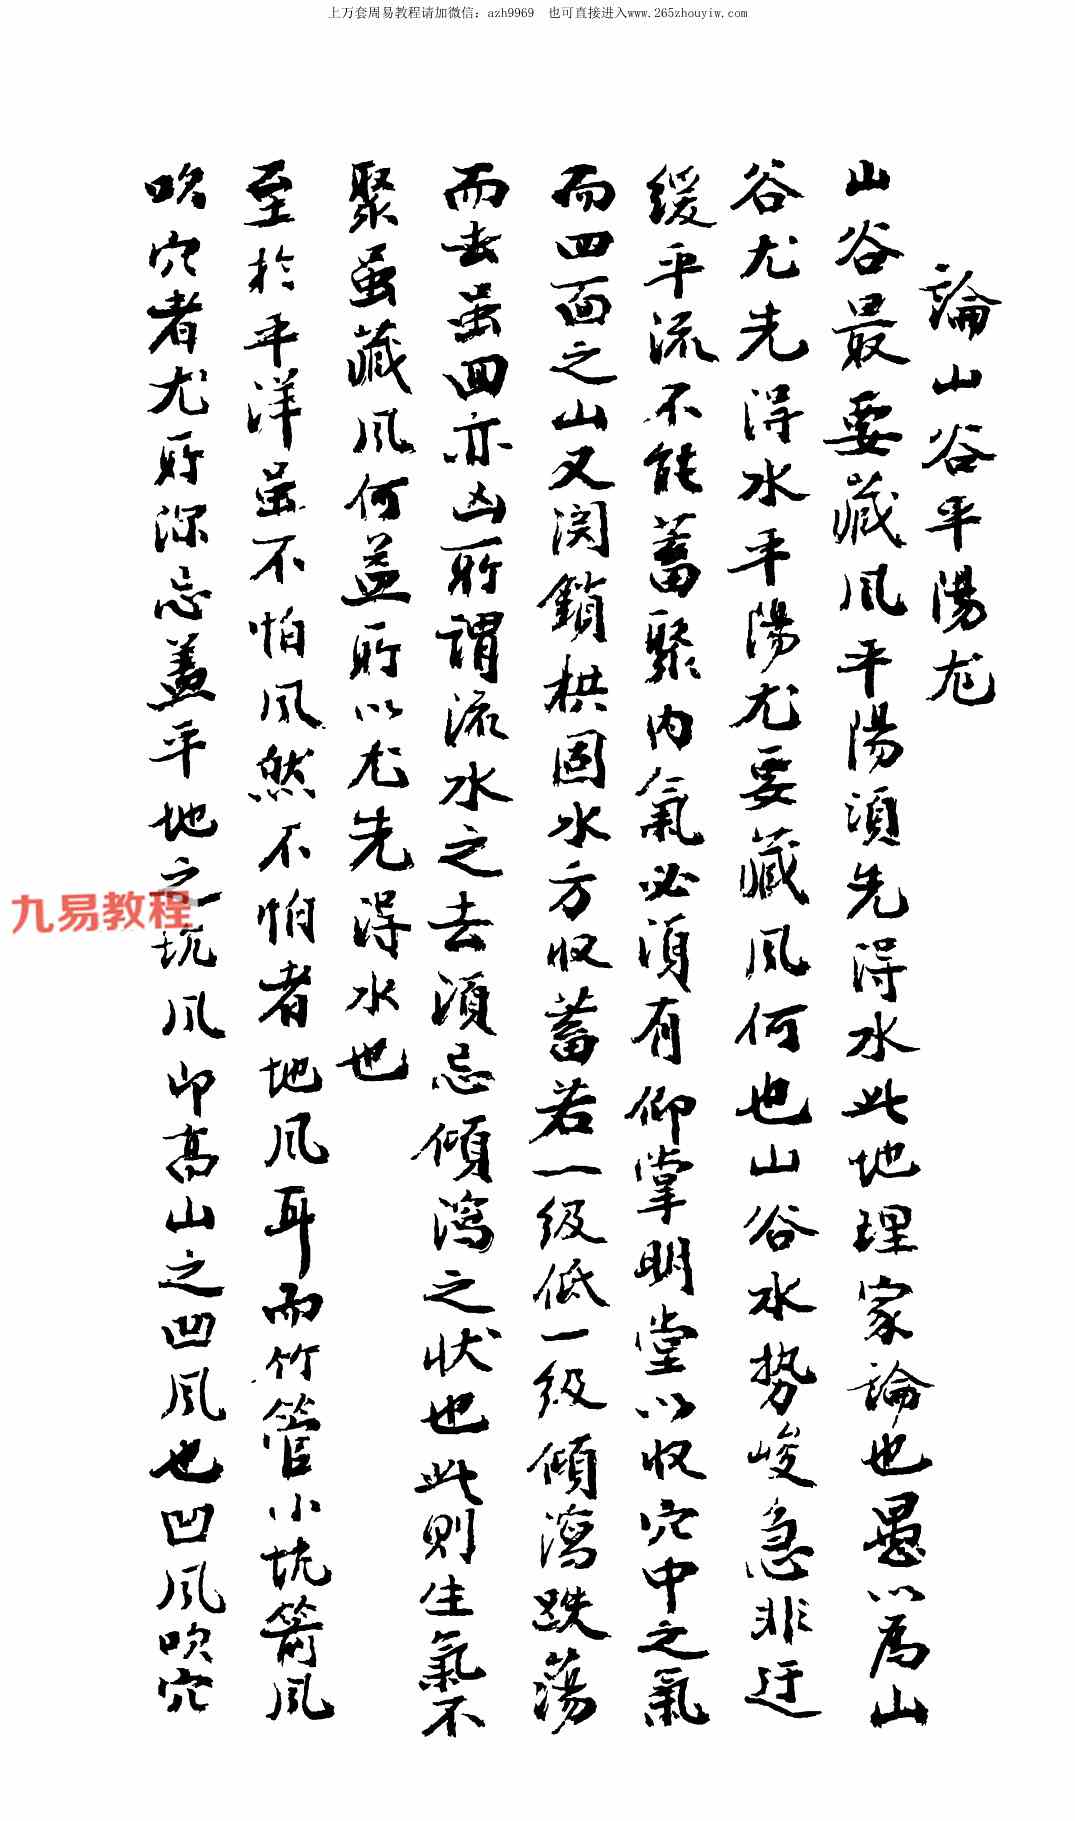 上万套周易教程请加微信：azh9969 也可直接进入www.265zhouyiw.com
論山谷平陽尤
山谷最要藏风平陽須先得水此地理家論也愚以為山
谷尤先得水平陽尤要藏风何也山谷水势峻急非迂
缓平流不能蓄聚內氣必須有仰掌明堂以収穴中之氣
而四面之山又関鎖栱固水方収蓄若一级低一级傾瀉跌蕩
而去虽回亦凶所謂流水之去須忌傾瀉之状也此則生氣不
聚虽藏风何益所以尤先得水也
至於平洋虽不怕风然不怕者地风耳而竹管小坑箭风
吹穴者尤所深忌盖平地之坑风即高山之凹风也凹风吹穴
九易教程